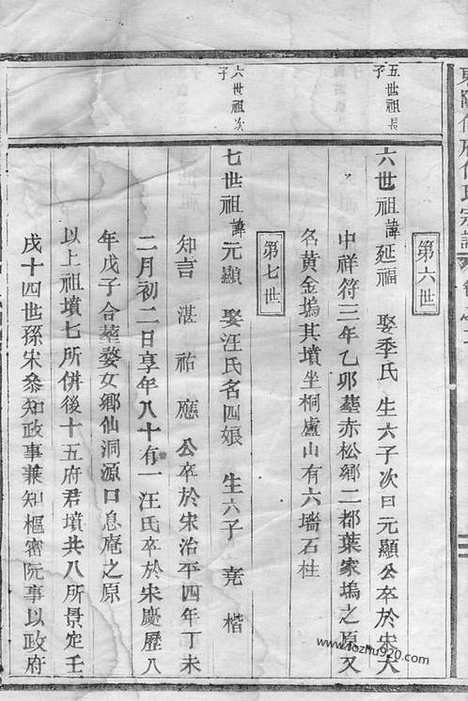 五世祖長子
六世祖次子
第六世
六世祖諱延福 娶季氏 生六子次曰元顯公卒於宋大
中祥符三年乙卯塟赤松鄉二都葉家塢之原又
名黃金塢其墳坐桐廬山有六墻石柱
第七世
七世祖諱元顯 娶汪氏名四娘 生六子 堯 楷
知言 湛 祐 應 公卒於宋治平四年丁未
二月初二日享年八十有一汪氏卒於宋慶歷八
年戊子合塟婺女鄉仙洞源口息庵之原
以上祖墳七所併後十五府君墳共八所景定壬
戌十四世孫宋叅知政事兼知樞密院事以政府
www.fozhu920.com